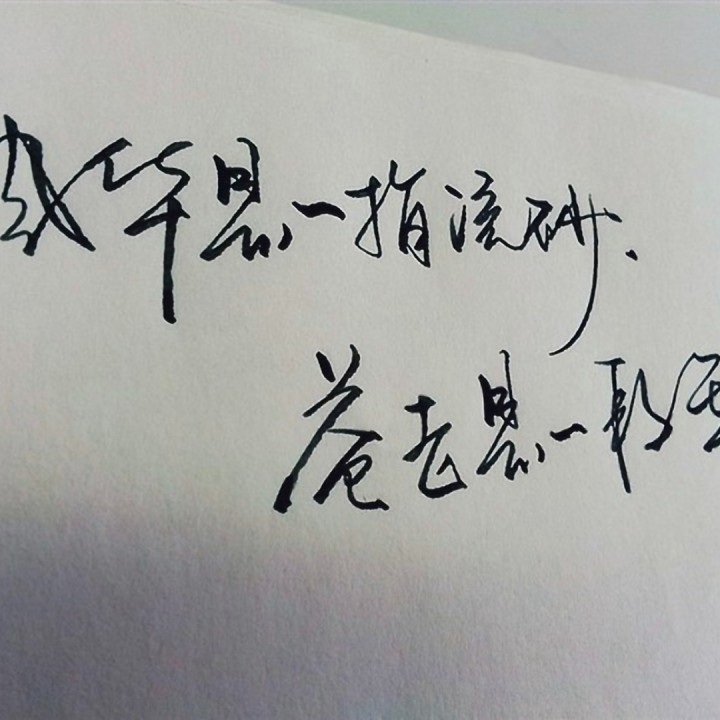 华是一指流砂、
苍老是一段